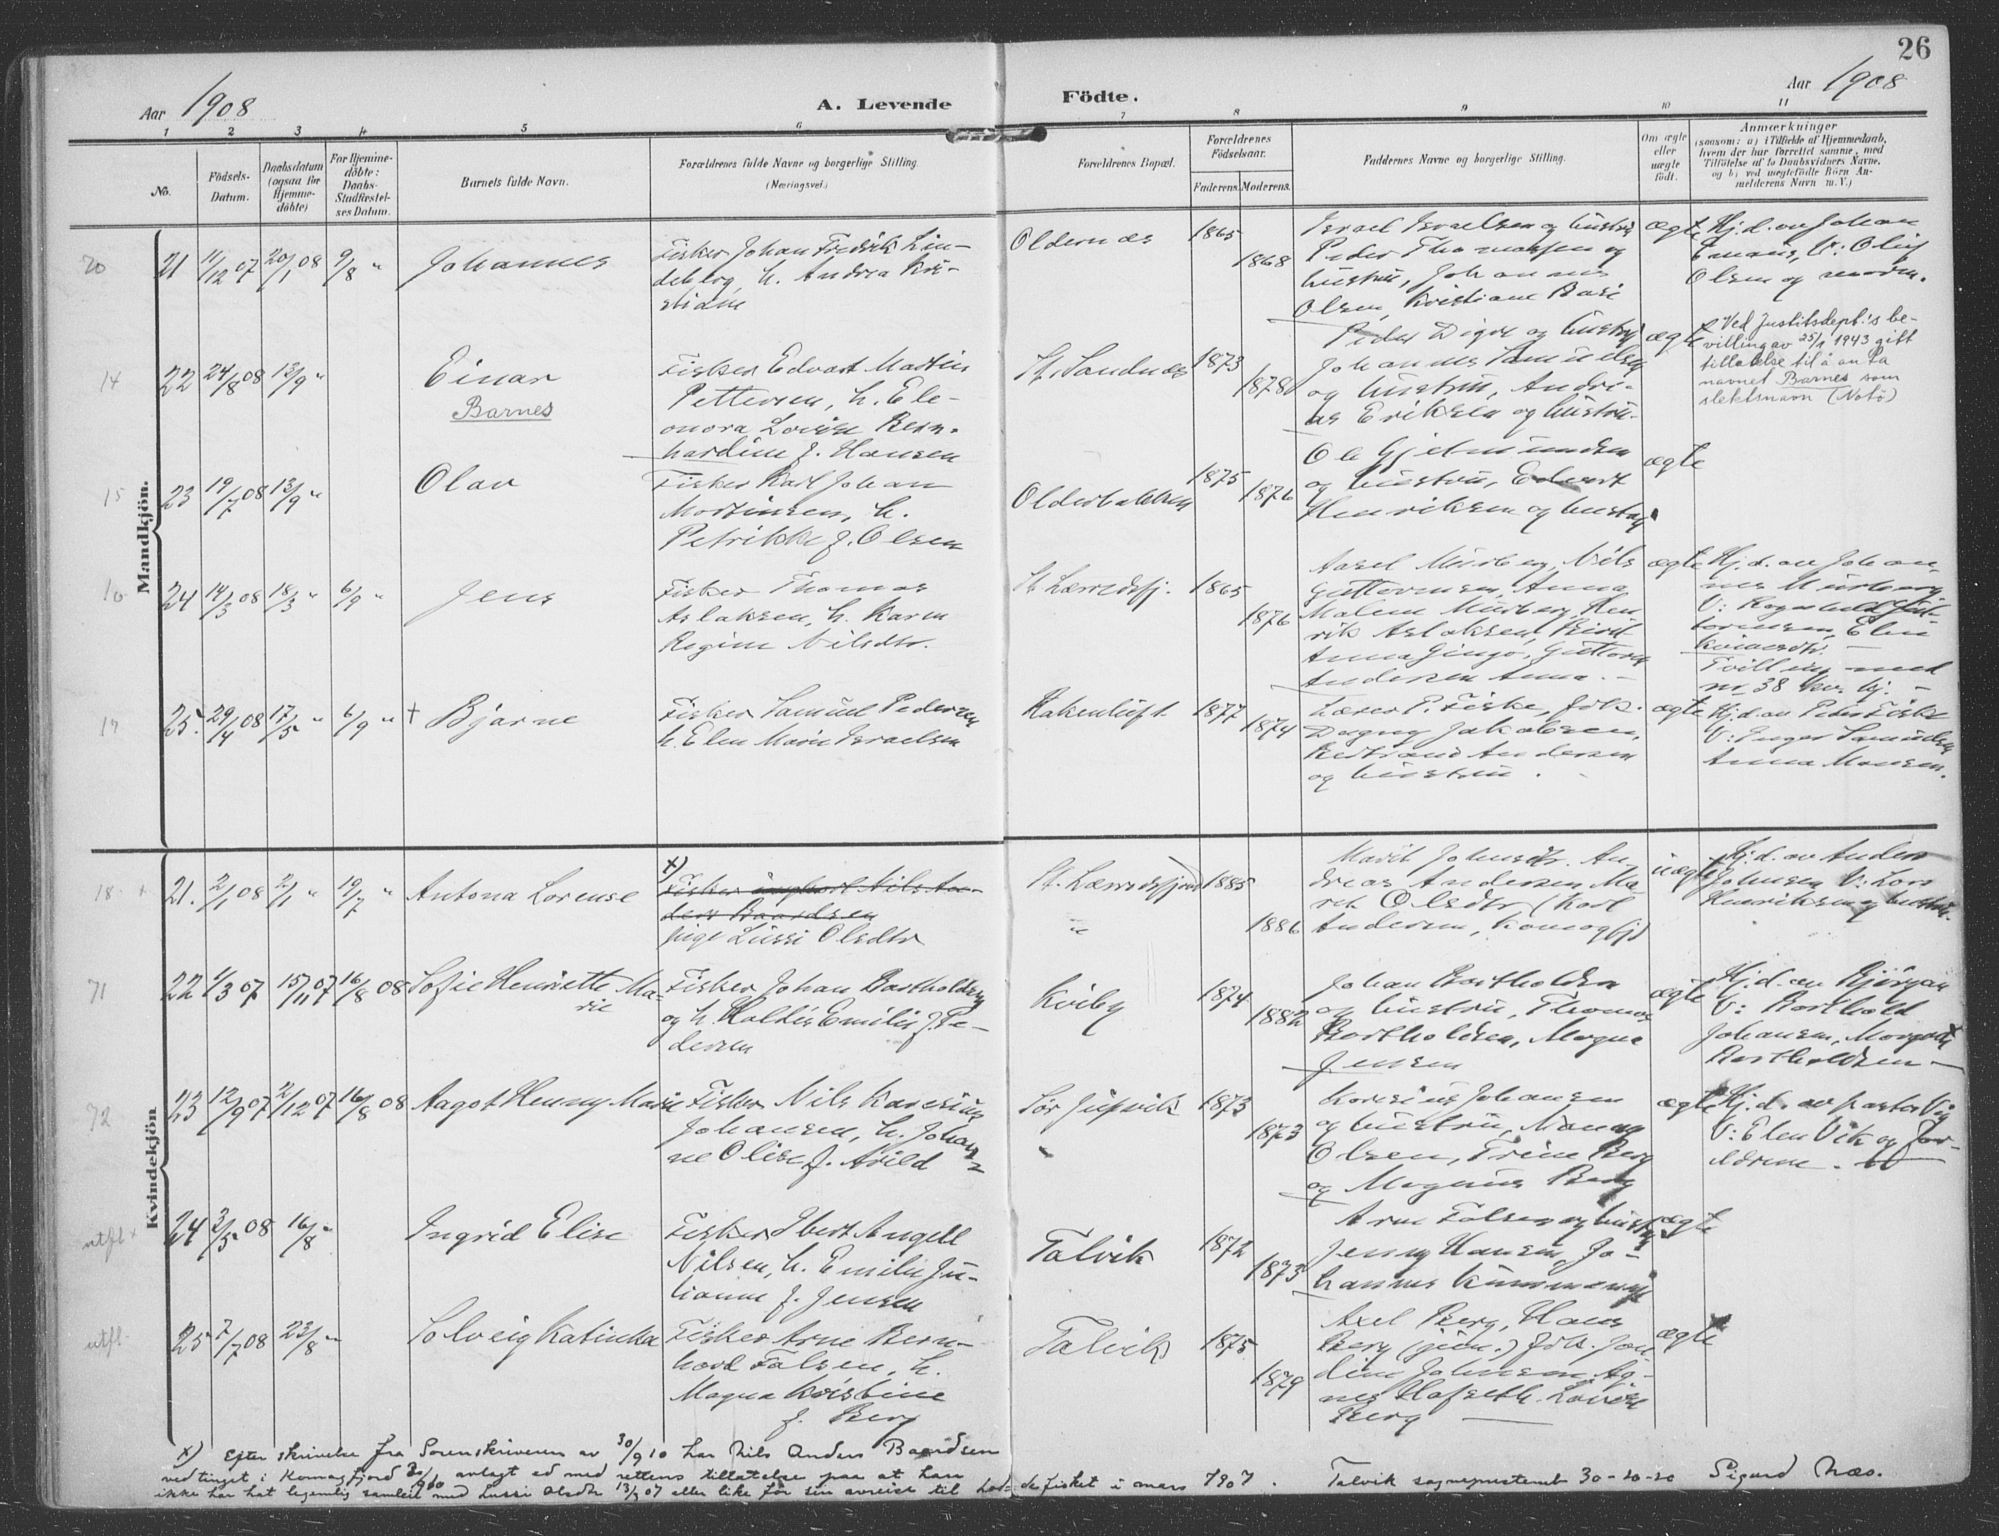 26
Aar 1908
A. Levende Födte.
Aar 1908
1 2 3 4 5 6 7 8 9 10 11
No.
Födsels-
Datum.
Daabsdatum
(ogsaa for
Hjemme-
döbte)
For Hjemme-
döbte:
Daabs-
Stadfæstel-
ses Datum.
Barnets fulde Navn.
Forældrenes fulde Navne og borgerlige Stilling.
(Næringsvei.)
Forældrenes Bopæl.
Forældrenes
Födselsaar.
Faderens. Moderens.
Faddernes Navne og borgerlige Stilling.
Om ægte
eller
uægte
födt.
Anmærkninger
(saasom: a) i Tilfælde af Hjemmedaab,
hvem der har forrettet samme, med
Tilföielse af to Daabsvidners Navne,
og b) ved uægtefödte Börn An-
melderens Navn m. V.)
Mandkjön.
20
21 11/12 07 20/1 08 9/8 "
Johannes
Fisker Johan Fredrik Lin-
deberg, h. Andrea Kri-
stiane
Oldernæs
1865
1868
Israel Israelsen og hustru
Peder Thomassen og
hustru, Johannes
Olsen, Kristiane Basi
ægte
Hj. d. av Johan
V: Oluf
Olsen og morm.
14
22 24/8 08 13/9 "
Einar
Barnes
Fisker Edvart Martin
Pettersen, h. Ele-
onora Lovise Bern-
hardine f. Hansen
St. Sandnes
1873
1878
Peder Digre og hustru
Johannes Samuelsen
og hustru, Andre-
as Eriksen og hustru.
ægte
Ved Justitsdept.'s be-
villing av 25/1 1943 gitt
tillatelse til å an ta
navnet Barnes som
slektsnavn (Notö)
15
23 19/7 08 13/9 "
Olav
Fisker Karl Johan
Mortinsen, h.
Petrikke f. Olsen
Olderbakken
1875
1876
Ole Gjermundsen
og hustru, Edvart
Henriksen og hustru
ægte
16
24 14/3 08 18/3 " 6/9 "
Jens
Fisker Thomas
Aslaksen, h. Karen
Regine Nilsdtr.
St. Lærredsfj.
1865
1876
Aksel Murberg, Nils
Guttormsen, Anna
Malene Murberg, Hen-
rik Aslaksen, Berit
Anna Guttorm
Andersen Anna. -
ægte
Hj. d. av Johan-
nes Murberg
V: Ragnhild Gut-
tormsen, Elen
Tvilling med
nr 38 kv. kj. -
17
25. 29/4 08 17/5 " 6/9 "
† Bjarne
Fisker Samuel Pedersen
h. Elen Marie Israelsen
Kakenluft
1877
1874
Lærer P. Fiske, frk.
Dagny Jakobsen,
Bertrand Andersen
og hustru.
ægte
Hj. d. av Peder Fiske
V: Inger Samuelsen
Anna Monsen.
Kvindekjön
18 +
21. 2/1 08 2/1 " 19/7 "
Antona Lorense
x)
Fisker ungkarl Nils An-
ders Baardsen
pige Lussi Olsdtr
St. Lærredsfjord
"
1885
1886
Marit Johnsdtr. An-
dreas Andersen, Ma-
rit Olsdtr (Karl
Andersen, Komagfj)
uægte
Hj. d. av Anders
Johnsen V: Lars
Henriksen og hustru.
71
22 1/3 07 15/11 07 16/8 08
Sofie Henriette Ma-
rie
Fisker Johan Bartholdsen
og h. Haldis Emilie f. Pe-
dersen
Kviby
1874
1882
Johan Bartholdsen
og hustru, Thomas
Bartholdsen, Magna
Jensen
ægte
Hj. d. av Björgan
V: Barthold
Johansen, Margrete
Bartholdsen -
72
23 12/9 07 2/12 07 16/8 08
Aagot Henny Marie
Fisker Nils Karesius
Johansen, h. Johan-
ne Olise f. Arild
Sör Jupvik
"
1873
1873
Karesius Johansen
og hustru, Nanny
Olsen, Trine Berg
og Magnus Berg
ægte
Hj. d. av pastor Vig
V: Elen Vik og for-
ældrene.
utfl +
24 3/5 08 16/8 "
Ingrid Elise
Fisker Ebert Angell
Nilsen, h. Emilie Ju-
lianne f. Jensen
Talvik
1872
1873
Arne Falsen og hustru,
Jenny Hansen, Jo-
hannes Kummeneje
ægte
utfl.
25 7/7 08 23/8 "
Solveig Katinka
Fisker Arne Bern-
hard Falsen, h.
Magna Kristine
f. Berg
Talvik
1875
1879
Axel Berg, Hans
Berg (jun.) frk. Jan-
dine Johnsen, Ag-
nes Hofseth, Lovise
Berg
ægte
x) Efter skrivelse fra Sorenskriveren av 30/9 10 har Nils Anders Baardsen
ved tinget i Komagfjord 20/9 1910 avlagt ed med rettens tillatelse paa at han
ikke har hat legemlig samleie med Lussi Olsdtr 13/3 07 eller like før sin avreise til Lod-de fisket i mars 1907. Talvik sogneprestembt 30-10-20 Sigurd Næs.